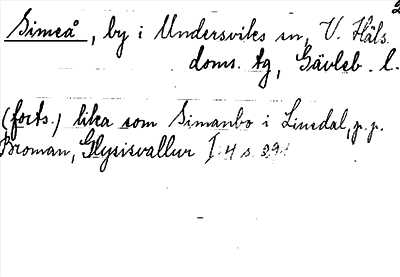 2
Simeå, by i Undersviks sn, V. Häls.
doms. tg, Gävleb. l.
(forts.) lika som Simanbo i Linsdal, p.p.
Broman, Glysisvallur I. 4 s. 39